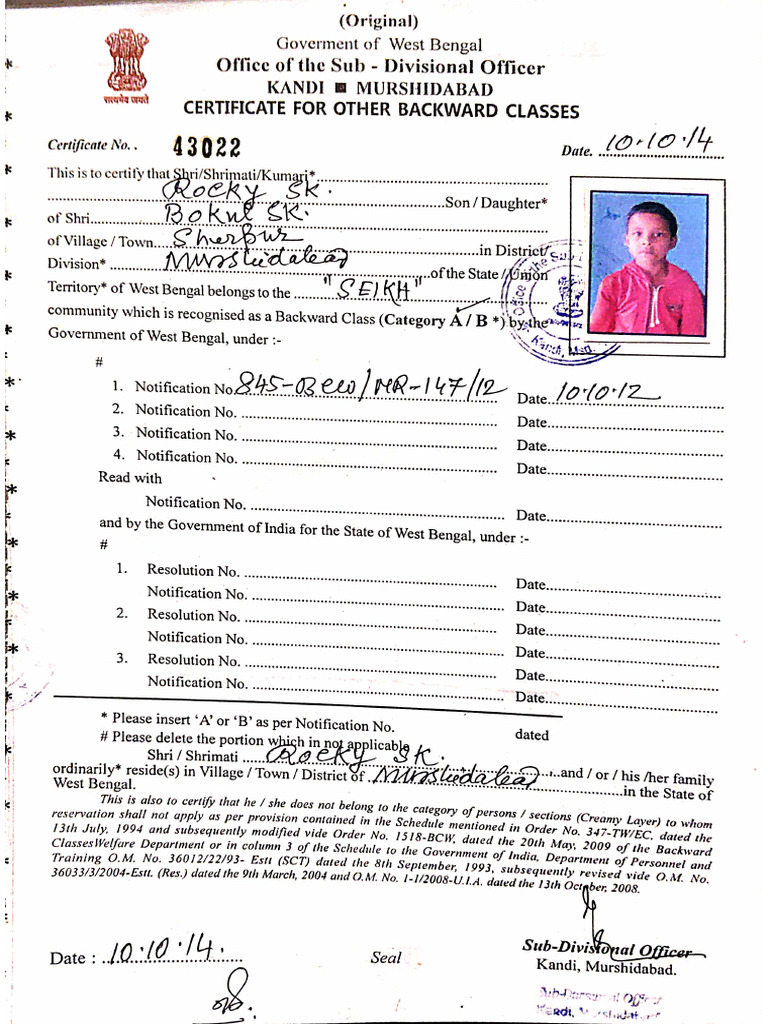 (Original)
Goverment of West Bengal
Office of the Sub - Divisional Officer
KANDI ■ MURSHIDABAD
CERTIFICATE FOR OTHER BACKWARD CLASSES
सत्यमेव जयते
Certificate No. . 43022 Date. 10.10.14
This is to certify that Shri/Shrimati/Kumari*
Rocky SK. Son / Daughter*
of Shri Bokul SK.
of Village / Town Sherpur in District/
Division* Murshidabad of the State / Union
Territory* of West Bengal belongs to the "SEIKH"
community which is recognised as a Backward Class (Category A / B *) by the
Government of West Bengal, under :-
#
1. Notification No. 845-BCW/MR-147/12 Date 10.10.12
2. Notification No. Date
3. Notification No. Date
4. Notification No. Date
Read with
Notification No. Date
and by the Government of India for the State of West Bengal, under :-
#
1. Resolution No. Date
Notification No. Date
2. Resolution No. Date
Notification No. Date
3. Resolution No. Date
Notification No. Date
* Please insert 'A' or 'B' as per Notification No. dated
# Please delete the portion which in not applicable
Shri / Shrimati Rocky SK. and / or / his /her family
ordinarily* reside(s) in Village / Town / District of Murshidabad in the State of
West Bengal.
This is also to certify that he / she does not belong to the category of persons / sections (Creamy Layer) to whom
reservation shall not apply as per provision contained in the Schedule mentioned in Order No. 347-TW/EC, dated the
13th July, 1994 and subsequently modified vide Order No. 1518-BCW, dated the 20th May, 2009 of the Backward
ClassesWelfare Department or in column 3 of the Schedule to the Government of India, Department of Personnel and
Training O.M. No. 36012/22/93- Estt (SCT) dated the 8th September, 1993, subsequently revised vide O.M. No.
36033/3/2004-Estt. (Res.) dated the 9th March, 2004 and O.M. No. 1-1/2008-U.I.A. dated the 13th October, 2008.
Date : 10.10.14. Seal Sub-Divisional Officer
Kandi, Murshidabad.
Sub-Divisional Officer
Kandi, Murshidabad